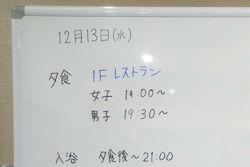 12月13日(水)
夕食 1F レストラン
女子 19:00～
男子 19:30～
入浴 夕食後～21:00